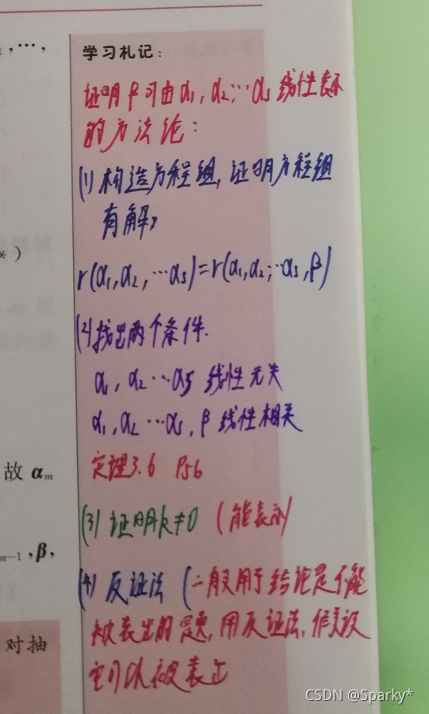 ,…,
学习札记:
证明β可由α₁,α₂,…αs线性表示
的方法论:
(1)构造方程组,证明方程组
有解,
*)
r(α₁,α₂,…αs)=r(α₁,α₂,…αs,β)
(2)找出两个条件.
α₁,α₂…αs线性无关
α₁,α₂…αs,β线性相关
故 αm
定理3.6 P56
(3)证明k≠0 (能表示)
m-1,β,
(4)反证法 (一般用于结论是不能
对抽
被表出的题,用反证法,假设
它可以被表出
CSDN @Sparky*